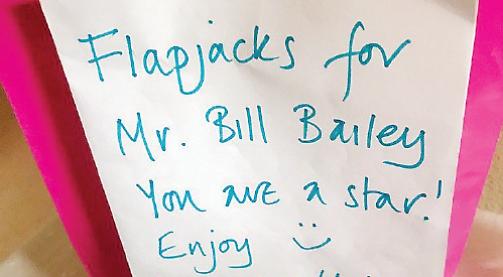 Flapjacks for
Mr. Bill Bailey
You are a star!
Enjoy :)